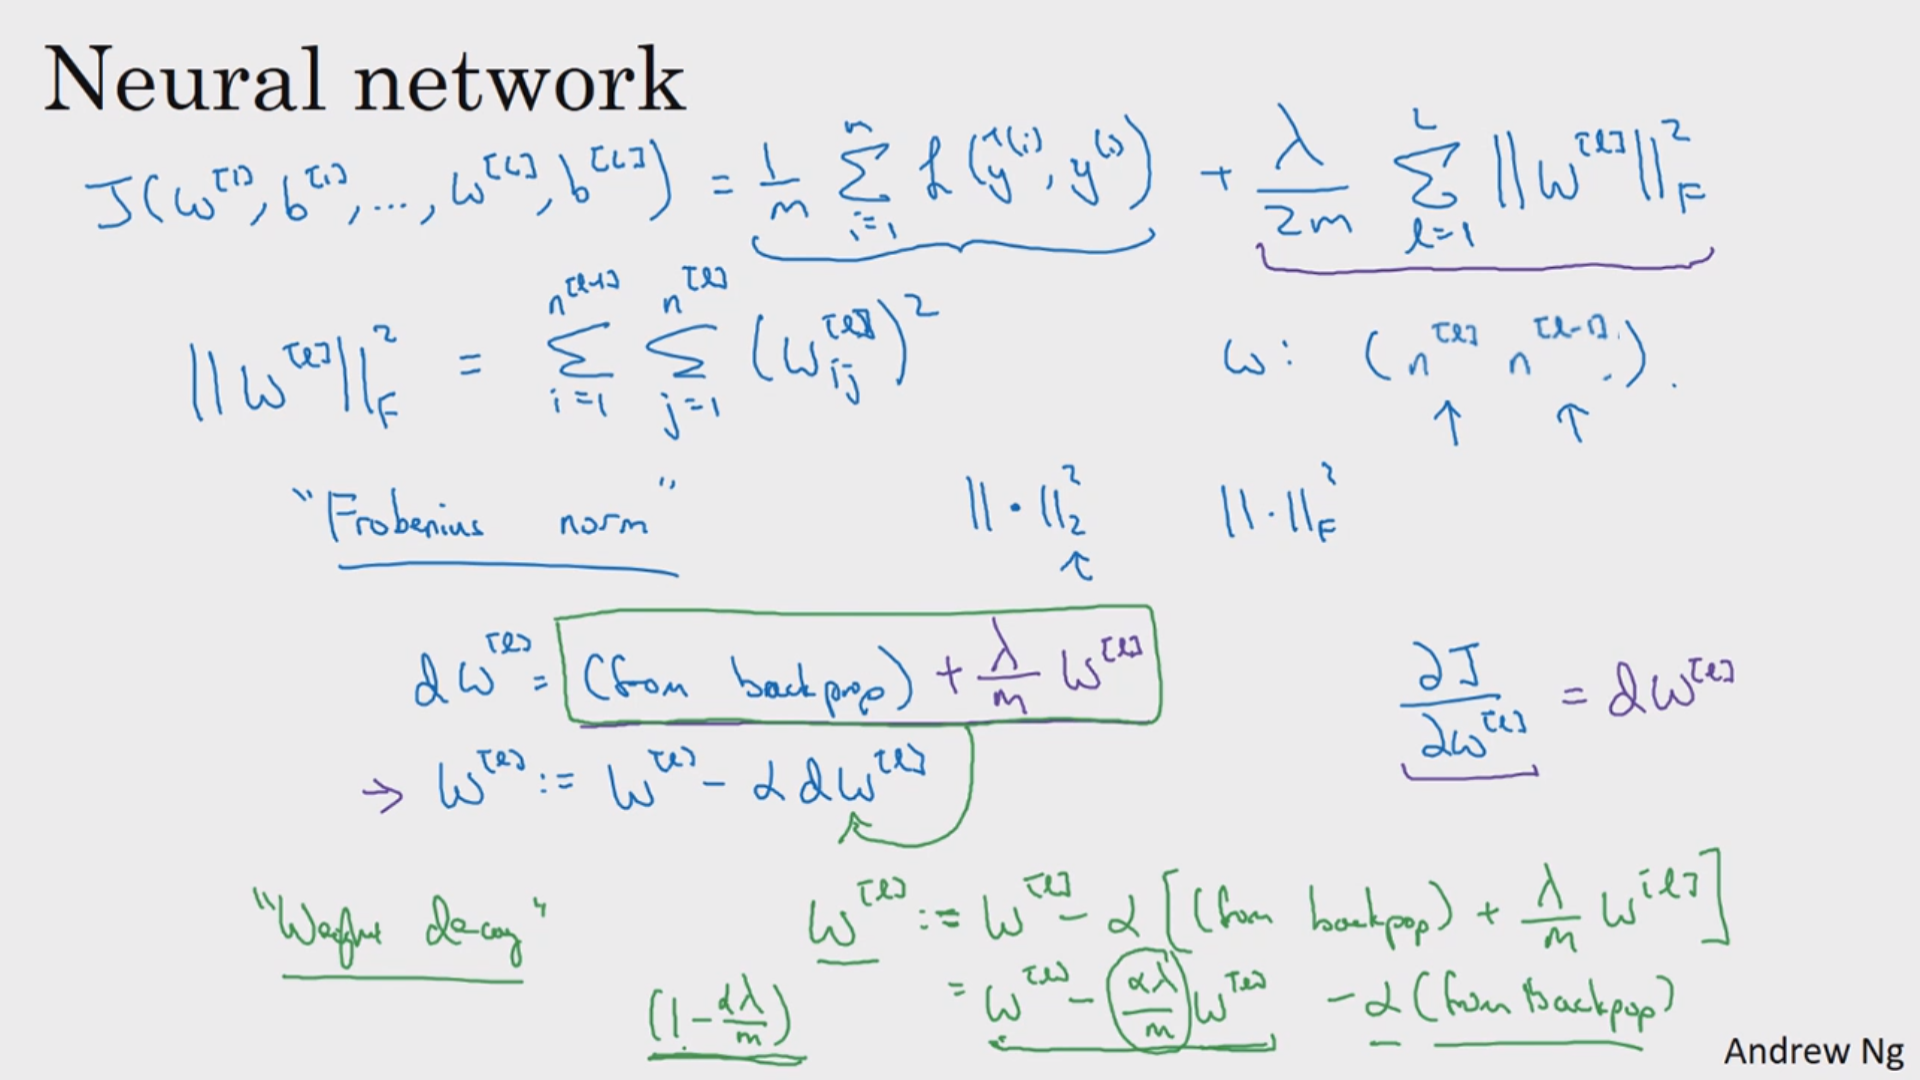 Neural network
J(w^[1], b^[1], ..., w^[L], b^[L]) = 1/m Σ_{i=1}^{m} ℒ(ŷ^(i), y^(i)) + λ/2m Σ_{l=1}^{L} ||w^[l]||_F^2
||w^[l]||_F^2 = Σ_{i=1}^{n^[l-1]} Σ_{j=1}^{n^[l]} (w_ij^[l])^2 w: (n^[l] n^[l-1]).
"Frobenius norm" ||·||_2^2 ||·||_F^2
dw^[l] = (from backprop) + λ/m w^[l] ∂J/∂w^[l] = dw^[l]
→ w^[l] := w^[l] - α dw^[l]
"Weight decay" w^[l] := w^[l] - α [(from backpop) + λ/m w^[l]]
(1 - αλ/m) = w^[l] - αλ/m w^[l] - α (from backpop)
Andrew Ng